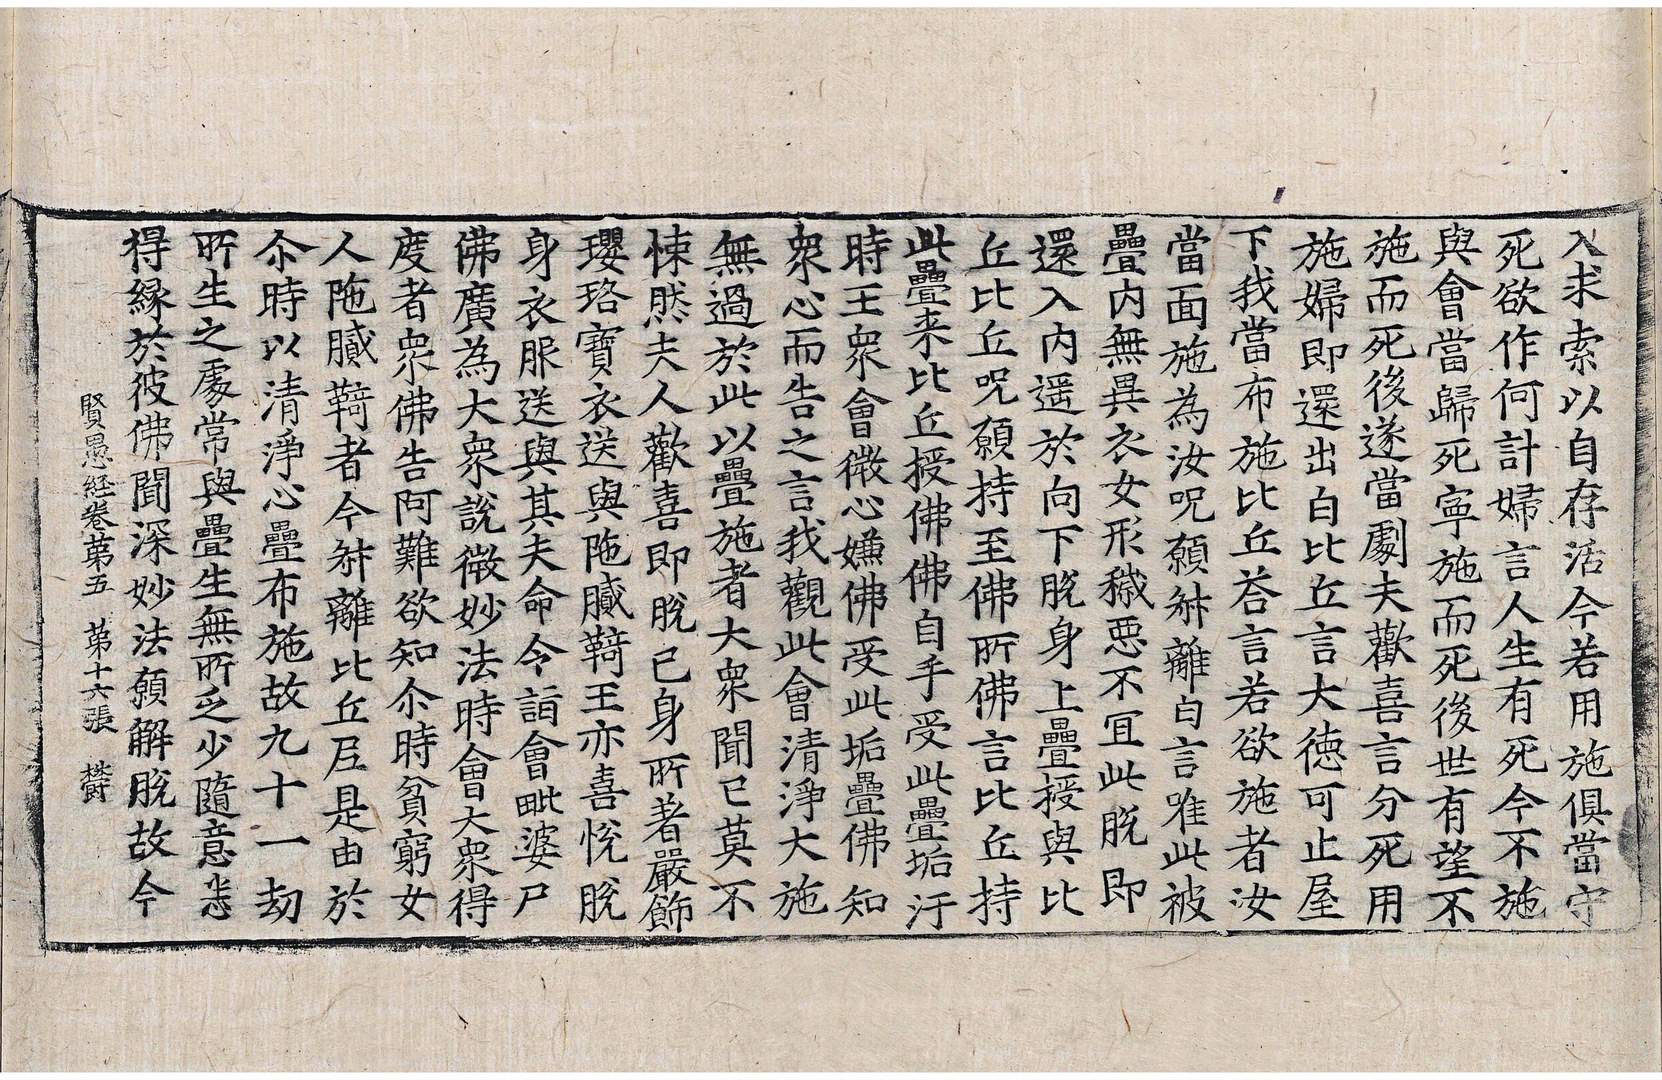 入求索以自存活今若用施俱當守
死欲作何計婦言人生有死今不施
與會當歸死寧施而死後世有望不
施而死後遂當劇夫歡喜言分死用
施婦即還出白比丘言大徳可止屋
下我當布施比丘荅言若欲施者汝
當面施為汝呪願叔離白言唯此被
疊内無異衣女形穢惡不宜此脫即
還入内遥於向下脫身上疊授與比
丘比丘呪願持至佛所佛言比丘持
此疊来比丘授佛佛自手受此疊垢汙
時王衆會微心嫌佛受此垢疊佛知
衆心而告之言我觀此會清淨大施
無過於此以疊施者大衆聞已莫不
悚然夫人歡喜即脫已身所著嚴飾
瓔珞寶衣送與陁膩䩭王亦喜悅脫
身衣服送與其夫命令詣會毗婆尸
佛廣為大衆說微妙法時會大衆得
度者衆佛告阿難欲知尒時貧窮女
人陁膩䩭者今叔離比丘尼是由於
尒時以清淨心疊布施故九十一劫
所生之處常與疊生無所乏少隨意悉
得縁於彼佛聞深妙法願解脫故今
賢愚経卷第五　第十六張　欝